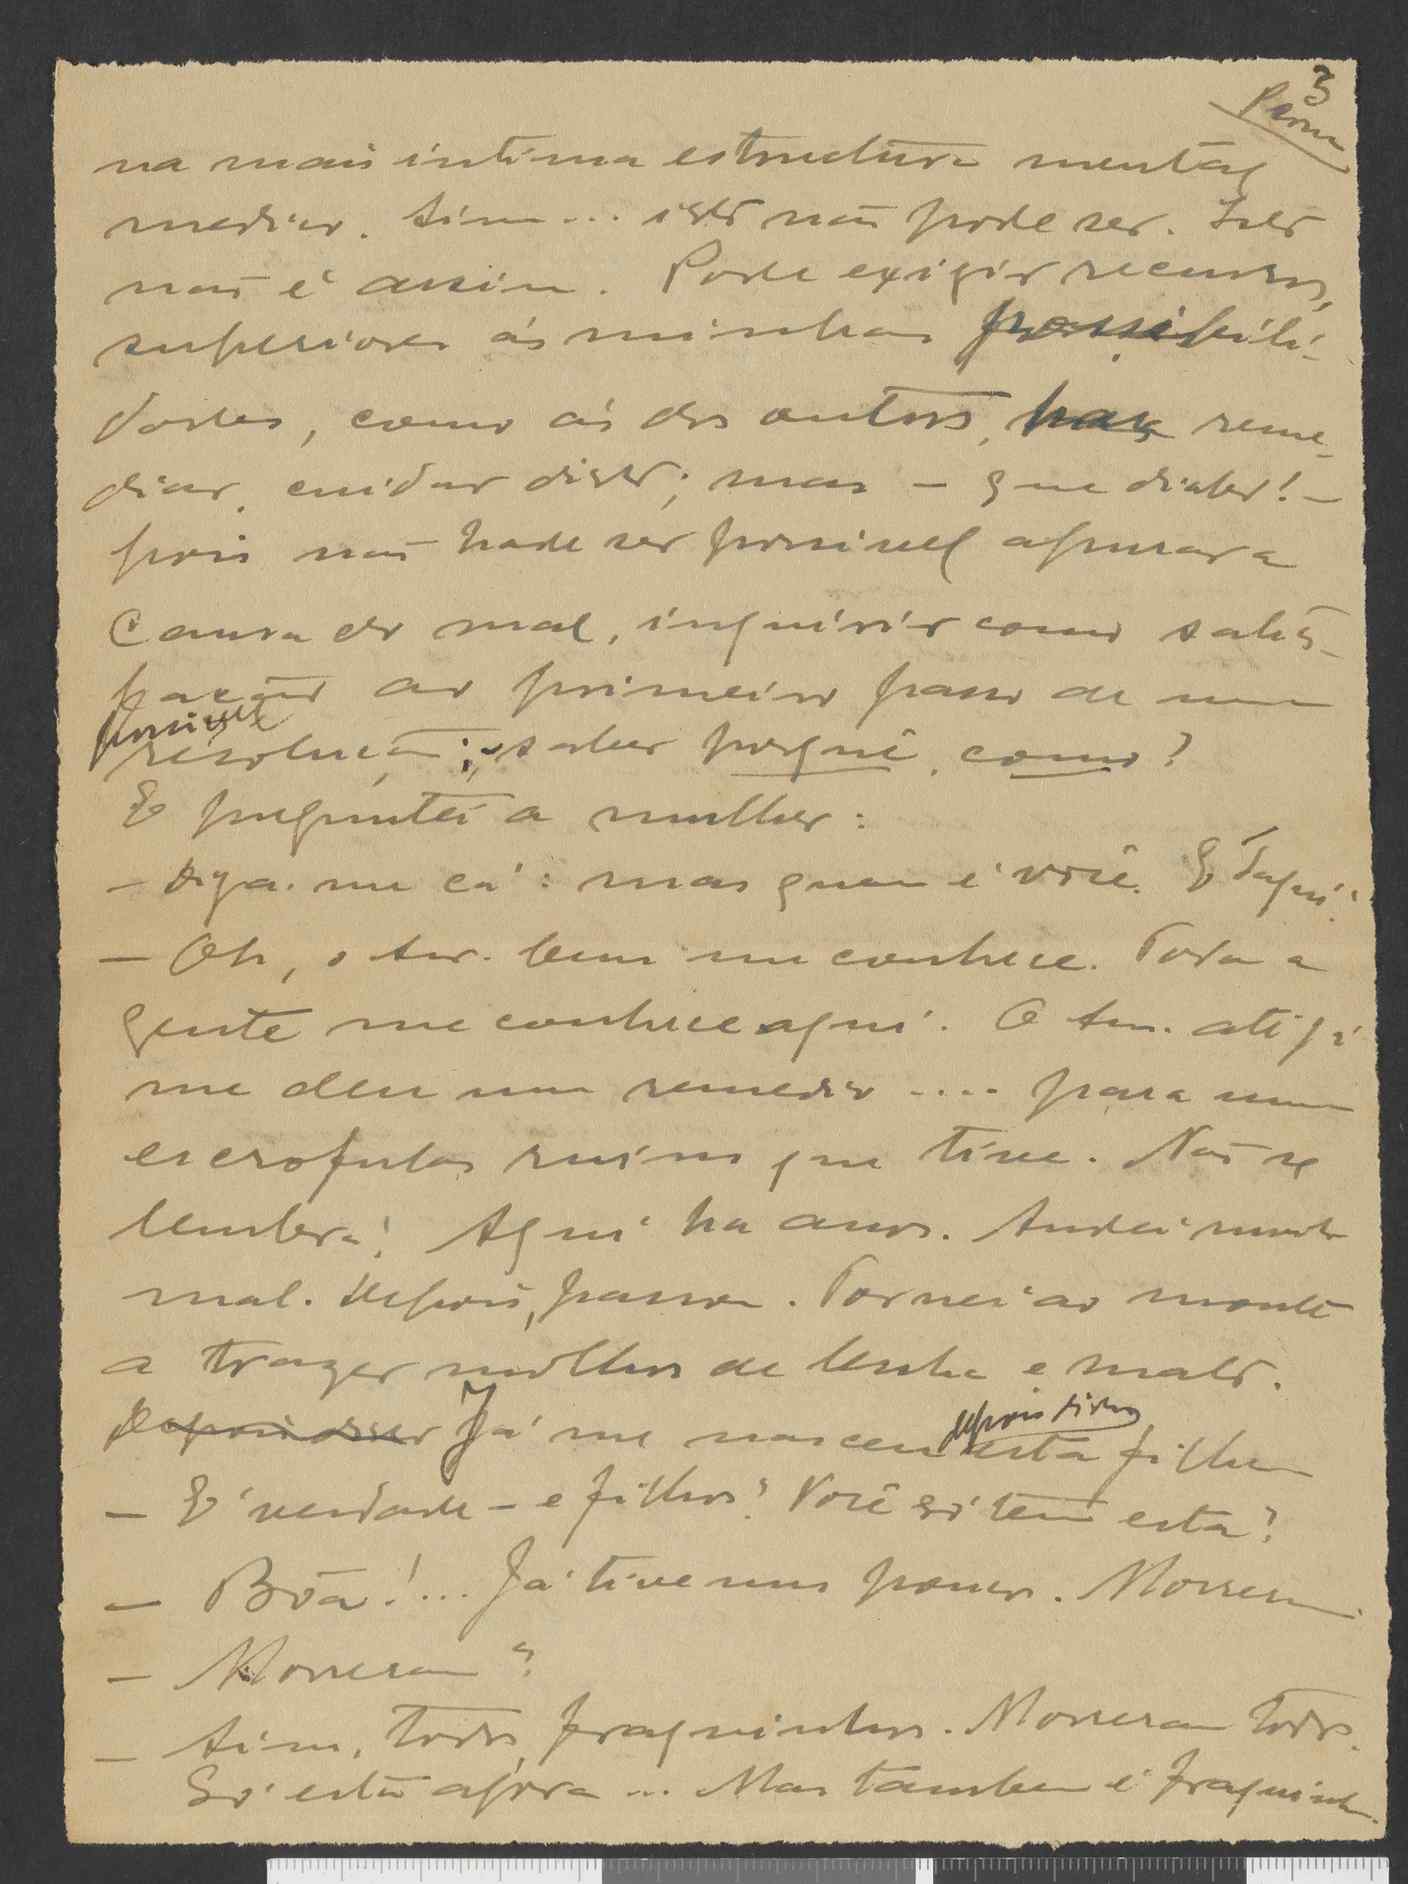 3
na mais intima estructura mental
medico. Sim... isto não pode ser. Isto
não é assim. Pode exigir recursos,
superiores ás minhas possibili-
dades, como ás dos outros, para reme-
diar, cuidar disto; mas – que diabo! –
pois não hade ser possivel apurar a
causa do mal, inquirir como satis-
fação ao primeiro passo de uma
possivel
resolução; saber porquê, como?
E preguntei a mulher:
– Diga-me cá: mas quem é você. É daqui?
– Oh, o Snr. bem me conhece. Toda a
gente me conhece aqui. O Snr. até já
me deu um remedio .... para umas
escrofulas ruins que tive. Não se
lembra? Aqui ha anos. Andei muito
mal. Depois, passou. Tornei ao monte
a trazer molhos de lenha e mato.
Depois disso Já me nasceu esta filha
depois disso
– É verdade – e filhos? Você só tem esta?
– Bôa!... Já tive uns poucos. Morreram.
– Morreram?
– Sim, todos fraquinhos. Morreram todos.
Só esta agora ... Mas tambem é fraquinha.